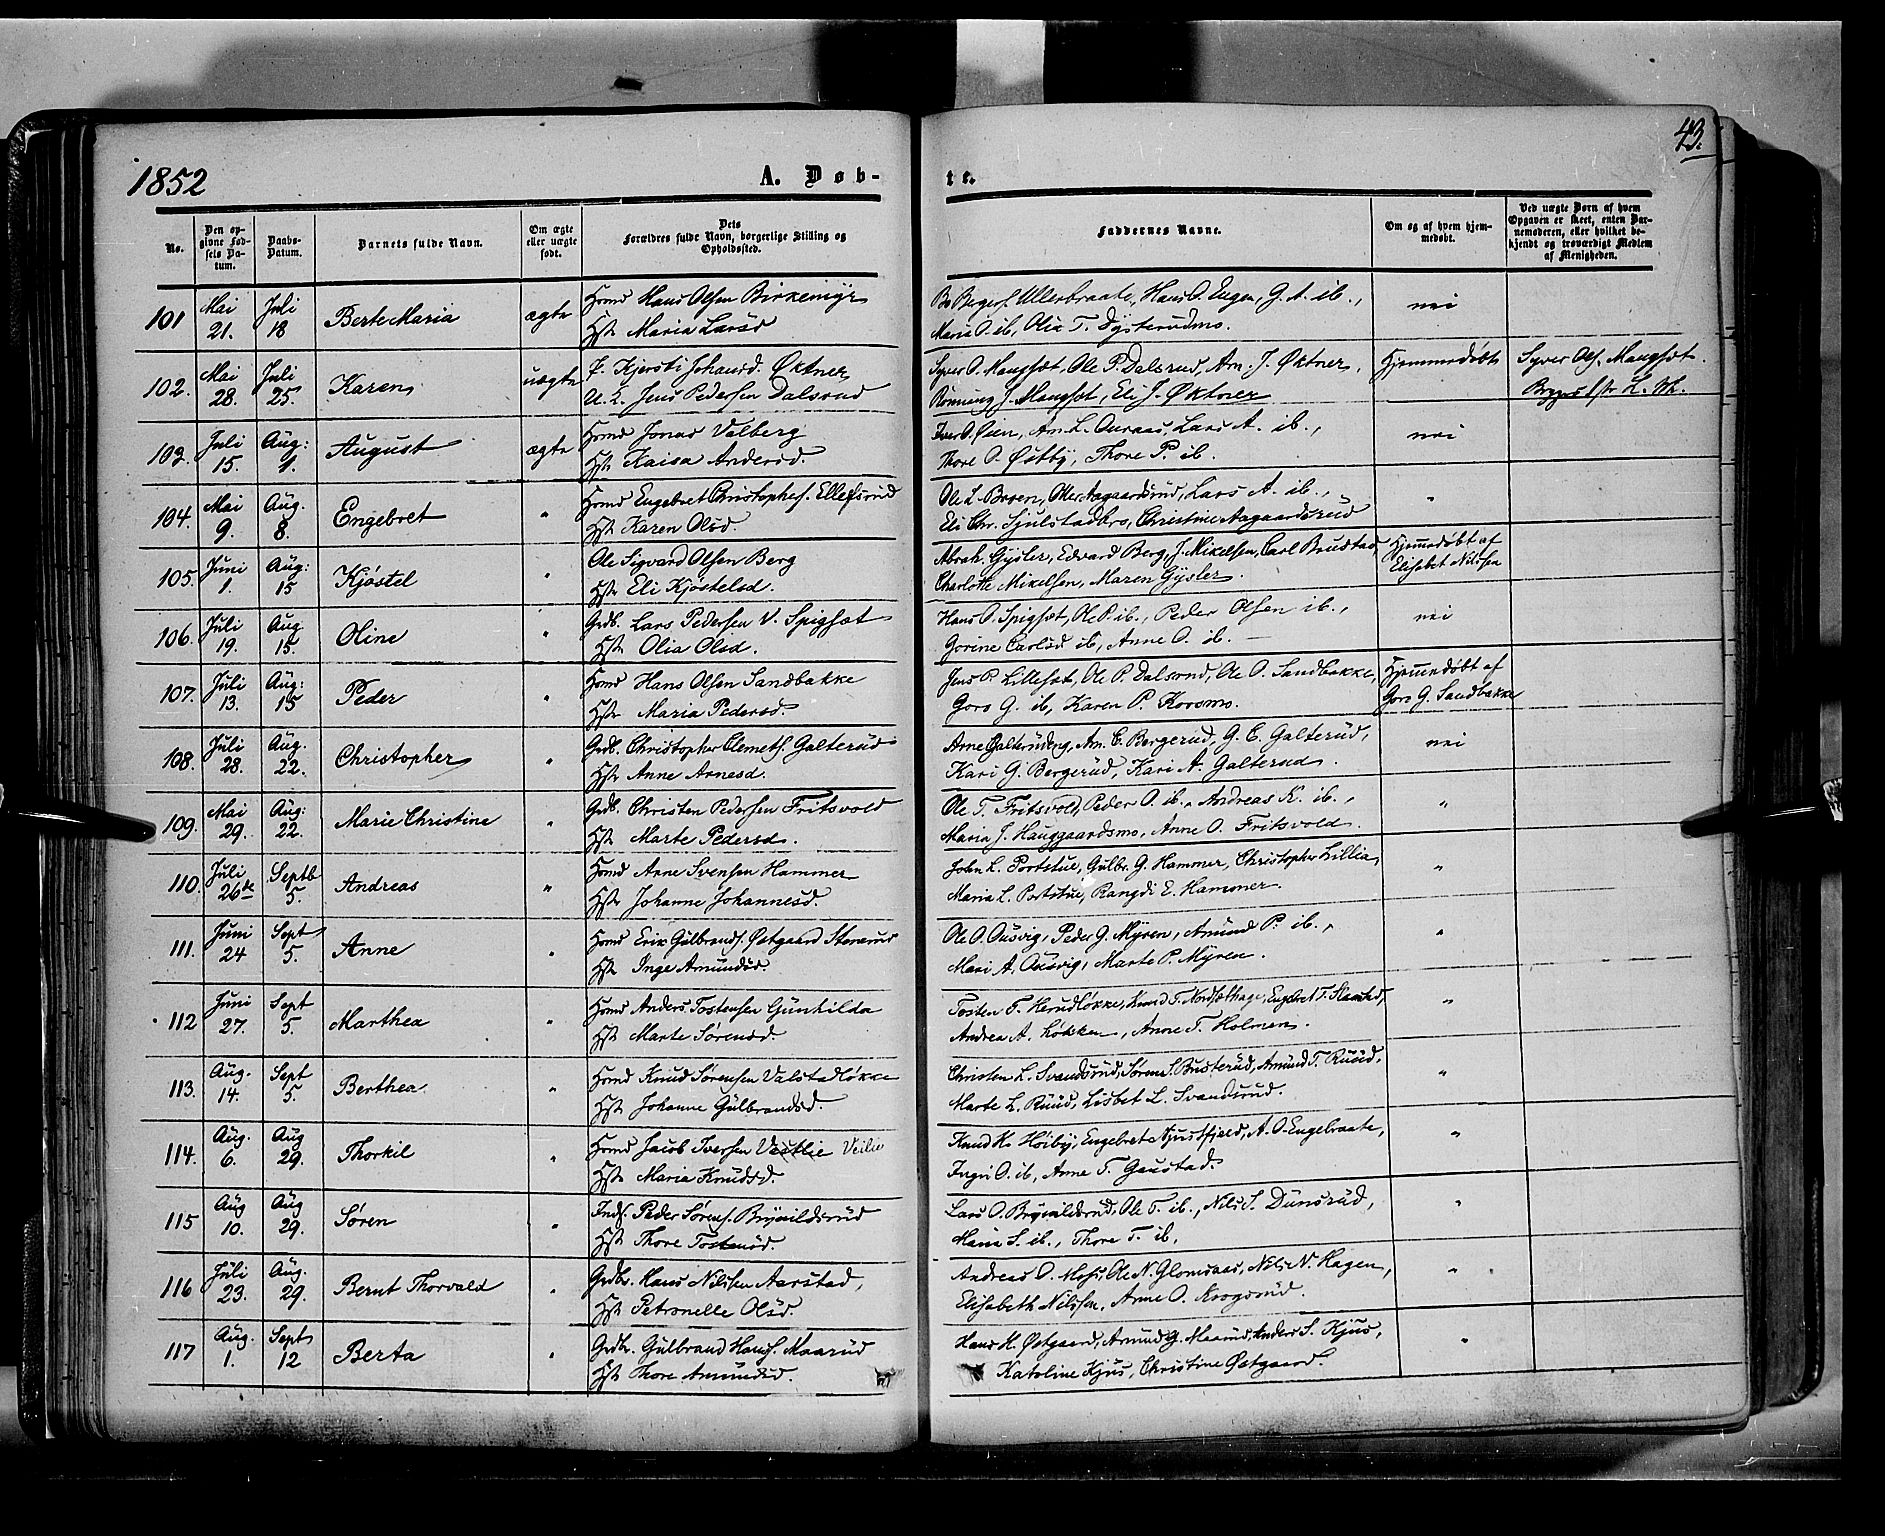 43.
1852 A. Døb- te.
No.
Den opgivne Fødsels Datum.
Daabs-Datum.
Barnets fulde Navn.
Om ægte eller uægte født.
Dets Forældres fulde Navn, borgerlige Stilling og Opholdssted.
Faddernes Navne.
Om og af hvem hjemmedøbt.
Ved uægte Børn af hvem Opgaven er skeet, enten Barnemoderen, eller hvilket bekjendt og troværdigt Medlem af Menigheden.
101 Mai 21. Juli 18 Berte Maria ægte Hmd Hans Olsen Birkemyr
Hst. Maria Larsd
Ullerbraate, Hans O. Engen, G. A. ib.,
Maria O. ib, Olia T. Dysterudmo. nei
102. Mai 28. Juli 25. Karen uægte P. Kjersti Johansd. Øktner
U. K. Jens Pedersen Dalsrud
Syver O. Mangset, Ole P. Dalsrud, Arn. J. Øktner,
Rønnaug J. Mangset, Eli J. Øktner Hjemmedøbt Syver Ols. Mangset.
103. Juli 15. Aug: 1. August ægte Hmd Jonas Valberg
Hst. Kaisa Andersd.
Iver O. Øien, Am. L. Auraas, Lars A. ib.,
Thore O. Østby, Thore P. ib. nei
104. Mai 9. Aug. 8. Engebret " Hmd Engebret Christophes. Ellefsrud
Hst. Karen Olsd.
Ole L. Broen, Ole Aagaardsrud, Lars A. ib.,
Eli Chr. Sjulstadbro, Christine Aagaardsrud "
105. Juni 1. Aug: 15 Kjøstel " Ole Sigvard Olsen Berg
Hst. Eli Kjøstelsd.
Abrah. Gysler, Edvard Berg, J. Mikelsen, Carl Brustad,
Charlotte Mikelsen, Maren Gysler. Hjemmedøbt af
Elisabet Nilssen
106. Juli 19. Aug 15. Oline " Grdb. Lars Pedersen V. Spigset
Hst. Olia Olsd.
Hans O. Spigset, Ole P. ib., Peder Olsen ib.,
Gorine Carlsd ib, Anne O. ib. nei
107. Juli 13. Aug: 15 Peder " Hmd Hans Olsen Sandbakke
Hst. Maria Pedersd.
Jens P. Lilleset, Ole P. Dalsrud, Ole O. Sandbakke,
Goro G. ib, Karen P. Korsmo. Hjemmedøbt af
Goro G. Sandbakke
108. Juli 28. Aug. 22. Christopher " Grdb. Christopher Clemets. Galterud
Hst. Anne Arnesd.
Arne Galterudeng, Am. C. Bergerud, G. C. Galterud,
Kari G. Bergerud, Kari A. Galterud. nei
109. Mai 29. Aug: 22. Marie Christine " Grdb. Christen Pedersen Fritsvold
Hst. Marte Pedersd.
Ole T. Fritsvold, Peder O. ib., Andreas K. ib.,
Maria J. Hauggaardsmo, Anne O. Fritsvold. "
110. Juli 26de Septb 5. Andreas " Hmd Arne Svensen Hammer
Hst. Johanne Johannesd.
John L. Portstue, Gulbr. G. Hammer, Christopher Lillia,
Maria L. Portstue, Rangdi E. Hammer. "
111. Juni 24 Sept 5. Anne " Hmd Erik Gulbrands. Østgaard
Hst. Inge Amundsd.
Ole O. Ousvig, Peder G. Myren, Amund P. ib.,
Mari A. Ousvig, Marte P. Myren. "
112 Juni 27. Sept 5. Marthea " Hmd Anders Tostensen Gunhilda
Hst. Marte Sørensd.
Tosten T. Herudløkke, Knud T. Nordsethage, Engebret T. Slaastad,
Andrea A. Løkken, Anne T. Holmen. "
113. Aug. 14. Sept 5. Berthea. " Hmd Knud Sørensen Valstadløkke
Hst. Johanne Gulbrandsd.
Christen L. Svandsrud, Søren S. Busterud, Amund T. Ruud.
Marte L. Ruud, Lisbet L. Svandsrud. "
114. Aug. 6. Aug 29. Thorkil " Hmd Jacob Iversen Vestlie Veilie
Hst. Maria Knudsd.
Knud K. Høiby, Engebret Njustfjeld, A. O. Engebraate,
Ingri O. ib, Anne T. Gaustad. "
115 Aug 10. Aug 29. Søren " Inds. Peder Sørens. Brynildsrud
Hst. Thore Tostensd.
Lars O. Brynildsrud, Ole T. ib., Nils S. Dunsrud,
Maria S. ib., Thore T. ib. "
116 Juli 23. Aug. 29. Bernt Thorvald " Grdbr. Hans Nilsen Aarstad,
Hst. Petronelle Olsd.
Andreas O. Moss, Ole N. Glomsaas, Nils N. Hagen,
Elisabeth Nilssen, Anne O. Krogsrud. "
117 Aug. 1. Sept 12 Berta " Grdbr. Gulbrand Hans. Maarud
Hst. Thore Amundsd.
Hans H. Østgaard, Amund G. Maarud, Anders S. Kjus,
Katoline Kjus, Christine Østgaard. "